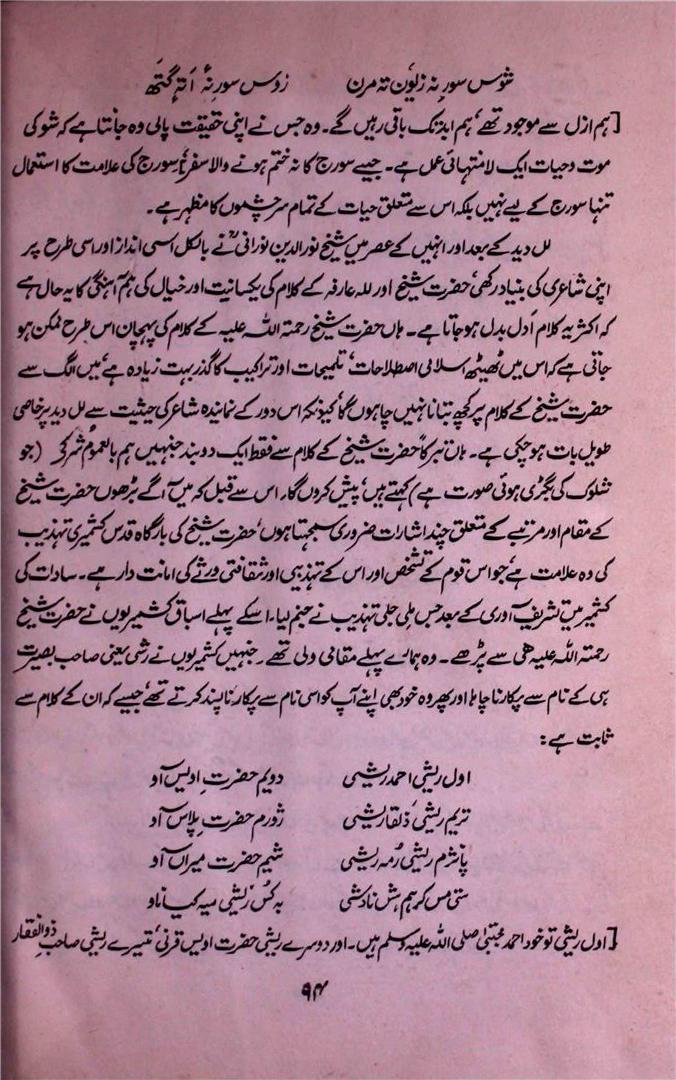 شوس سورِ نہ زیون تہ مرن زوس سورِ نہٕ اَتہٕ گتھ
[ہم ازل سے موجود تھے‘ ہم ابد تک باقی رہیں گے۔ وہ جس نے اپنی حقیقت پالی وہ جانتا ہے کہ شو کی
موت و حیات ایک لا منتہائی عمل ہے۔ جیسے سورج کا نہ ختم ہونے والا سفر‘ یا سورج کی علامت کا استعمال
تنہا سورج کے لیے نہیں بلکہ اس سے متعلق حیات کے تمام سرچشموں کا مظہر ہے۔
لل دید کے بعد اور انہیں کے عصر میں شیخ نور الدین نورانیؒ نے بالکل اسی انداز اور اسی طرح پر
اپنی شاعری کی بنیاد رکھی‘ حضرت شیخ اور للہ عارفہ کے کلام کی یکسانیت اور خیال کی ہم آہنگی کا یہ حال ہے
کہ اکثر یہ کلام اَدل بدل ہو جاتا ہے۔ ہاں حضرت شیخ رحمتہ اللہ علیہ کے کلام کی پہچان اس طرح ممکن ہو
جاتی ہے کہ اس میں ٹھیٹھ اسلامی اصطلاحات‘ تلمیحات اور تراکیب کا گذر بہت زیادہ ہے‘ میں الگ سے
حضرت شیخ کے کلام پر کچھ بتانا نہیں چاہوں گا‘ کیونکہ اس دور کے نمایندہ شاعر کی حیثیت سے لل دید پر خاصی
طویل بات ہو چکی ہے۔ ہاں تبرکاً حضرت شیخ کے کلام سے فقط ایک دو بند جنہیں ہم بالعموم شرکی (جو
شلوک کی بگڑی ہوئی صورت ہے) کہتے ہیں‘ پیش کروں گا۔ اس سے قبل کہ میں آگے بڑھوں حضرت شیخ
کے مقام اور مرتبے کے متعلق چند اشارات ضروری سمجھتا ہوں‘ حضرت شیخ کی بارگاہ قدس کشمیری تہذیب
کی وہ علامت ہے‘ جو اس قوم کے تشخص اور اس کے تہذیبی اور ثقافتی ورثے کی امانت دار ہے۔ سادات کی
کشمیر میں تشریف آوری کے بعد جس ملی جلی تہذیب نے جنم لیا۔ اسکے پہلے اسباق کشمیریوں نے حضرت شیخ
رحمتہ اللہ علیہ ہی سے پڑھے۔ وہ ہمارے پہلے مقامی ولی تھے۔ جنہیں کشمیریوں نے رشی یعنی صاحب بصیرت
ہی کے نام سے پکارنا چاہا اور پھر وہ خود بھی اپنے آپ کو اسی نام سے پکارنا پسند کرتے تھے‘ جیسے کہ ان کے کلام سے
ثابت ہے:
اول ریشی احمد ریشی دویم حضرتِ اویس آو
تریم ریشی ذلقا ریشی ژورم حضرت پلاس آو
پانژم ریشی رُمہ ریشی شیم حضرت میراں آو
ستی مس کرہم ہش نا دشی بہ کس ریشی میہ کیا ناو
[اول ریشی تو خود احمد مجتبیٰ صلی اللہ علیہ وسلم ہیں۔ اور دوسرے ریشی حضرت اویس قرنی‘ تیسرے ریشی صاحب ذوالفقار
۹۴